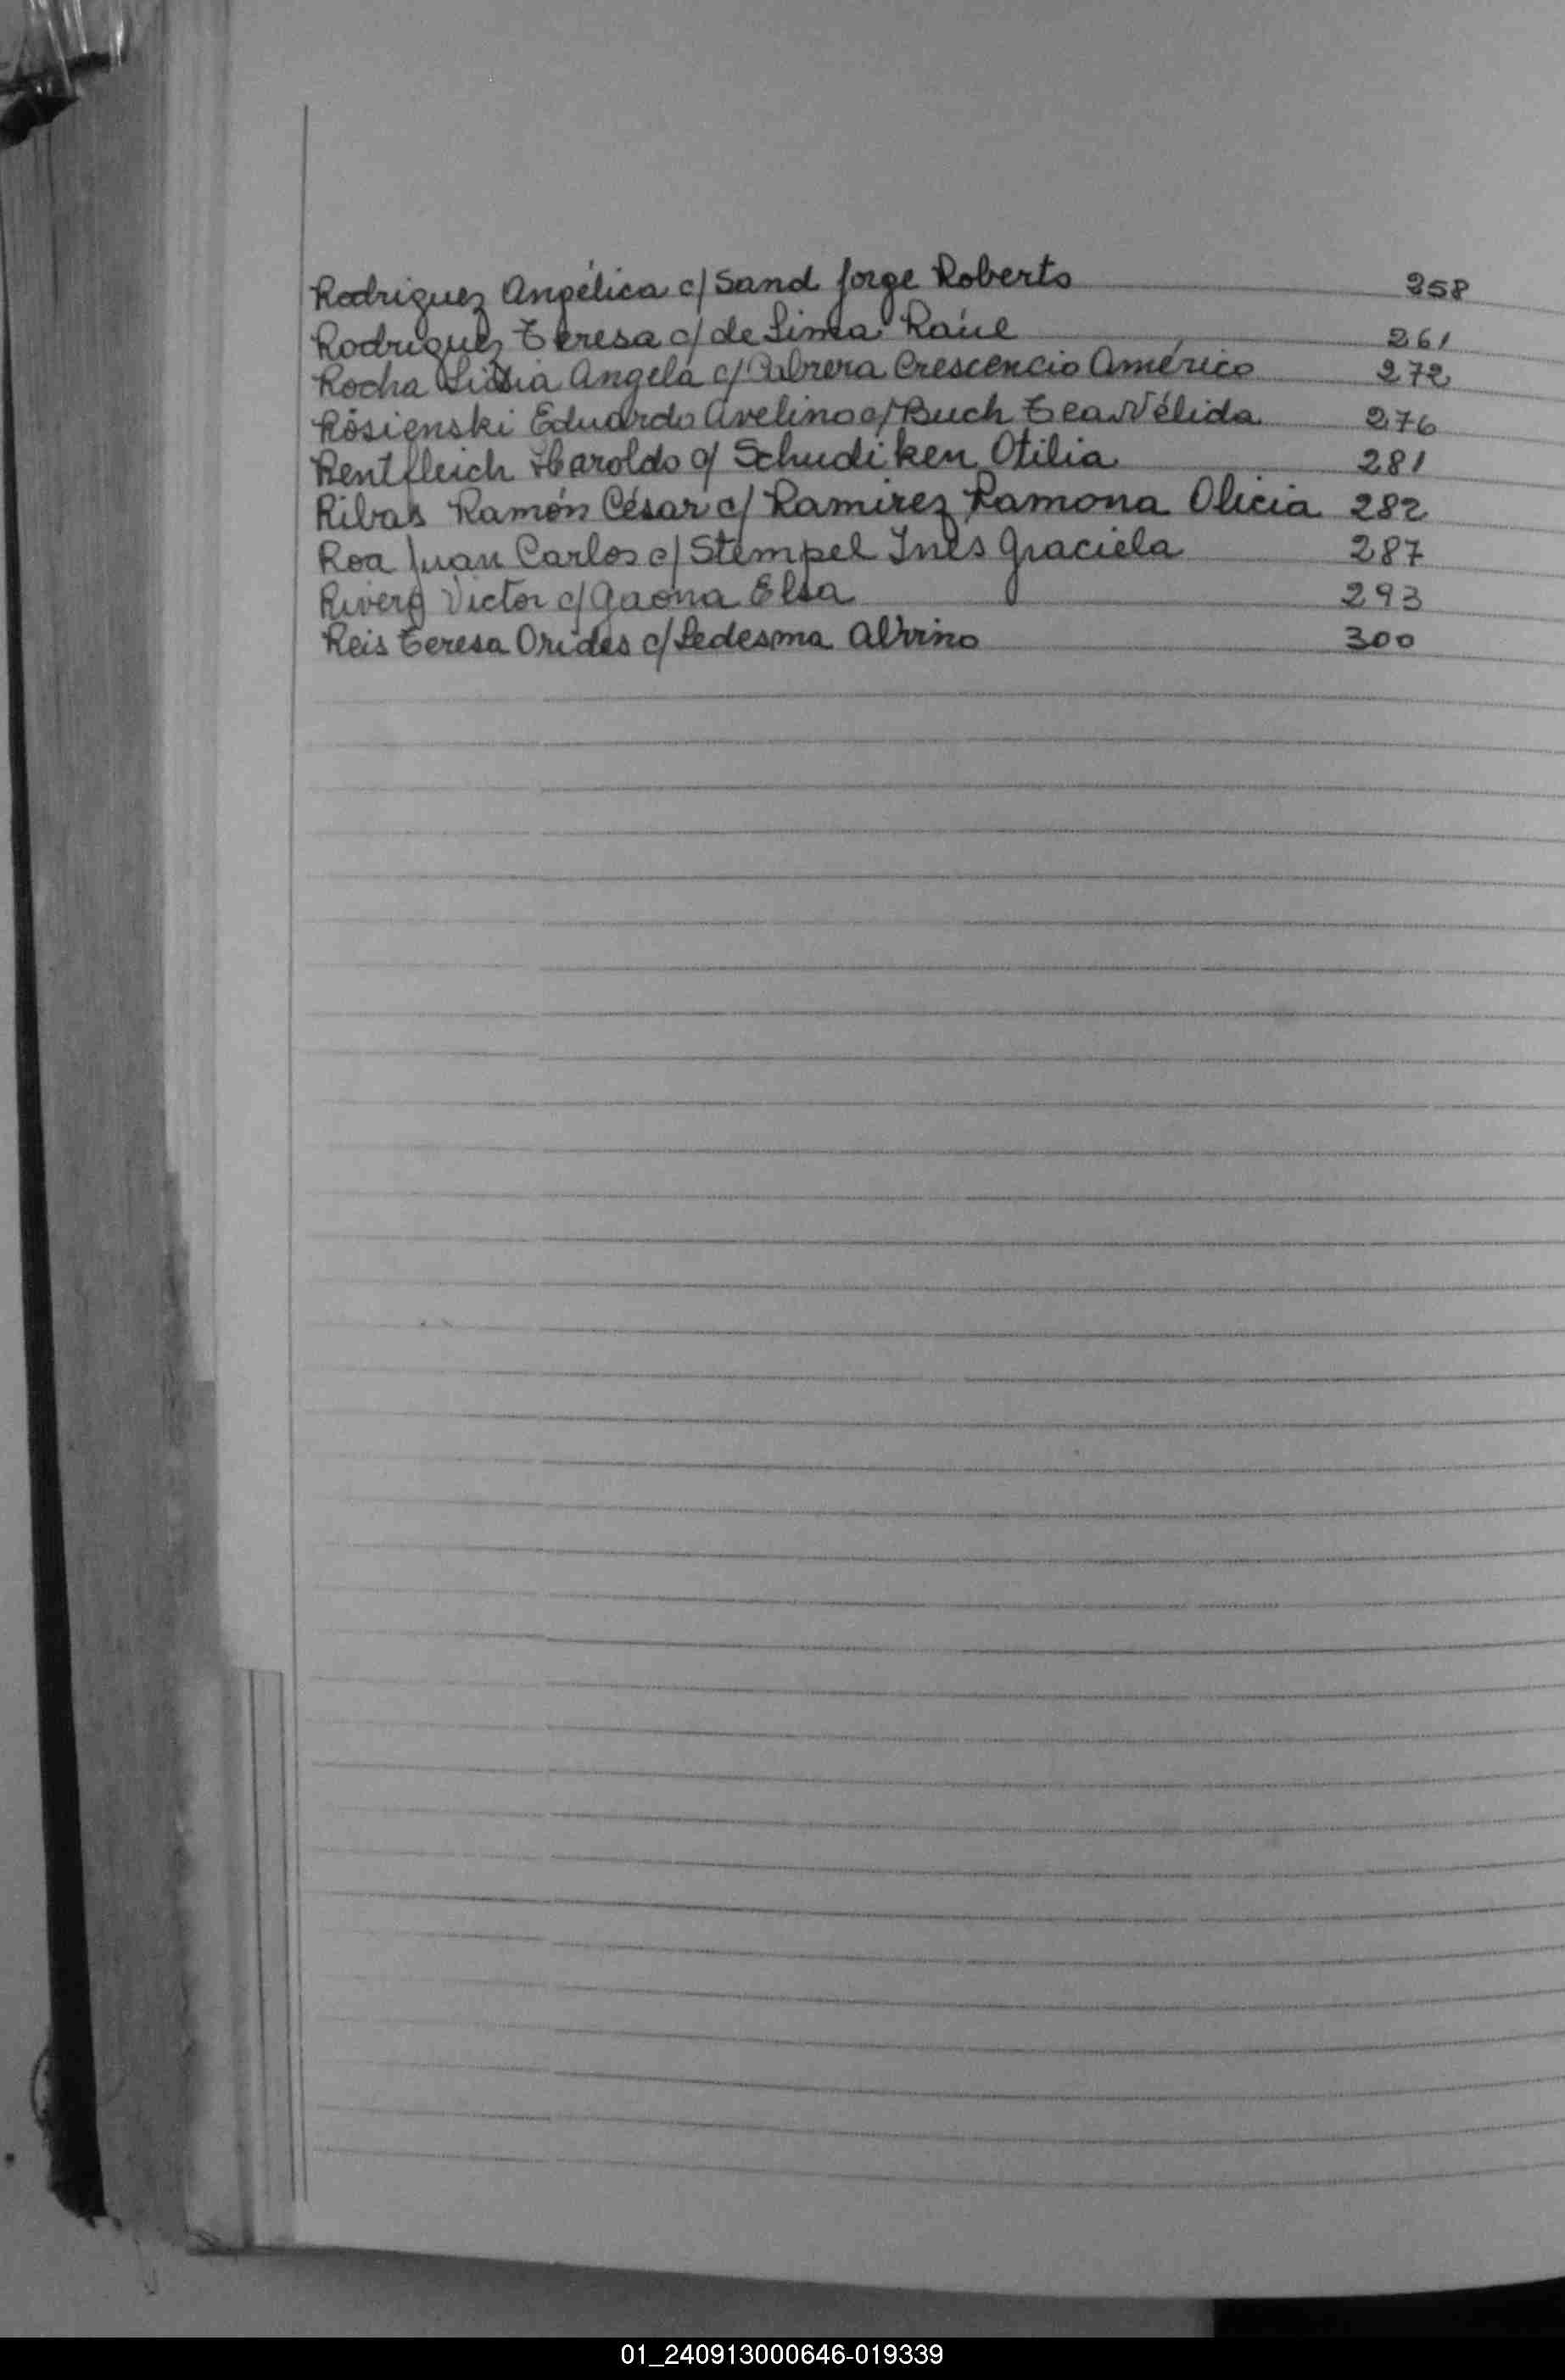 Rodriguez Angélica c/ Sand Jorge Roberto 258
Rodriguez Teresa c/ de Lima Raúl 261
Rocha Angela c/ Cabrera Crescencio Américo 272
Rosienski Eduardo Avelino c/ Buch Tea Nélida 276
Rentfleich Haroldo c/ Schudiken Otilia 281
Ribas Ramón César c/ Ramirez Ramona Olicia 282
Roa Juan Carlos c/ Stempel Inés Graciela 287
Rivero Victor c/ Gaona Elsa 293
Reis Teresa Orides c/ Ledesma Alvino 300
01_240913000646-019339